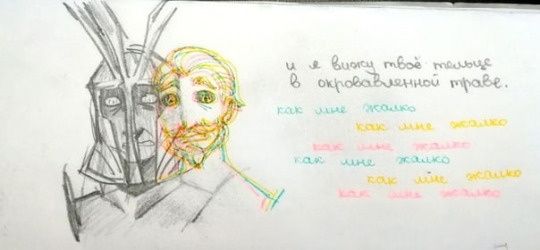 и я вижу твоё тельце
в окровавленной траве.
как мне жалко
как мне жалко
как мне жалко
как мне жалко
как мне жалко
как мне жалко